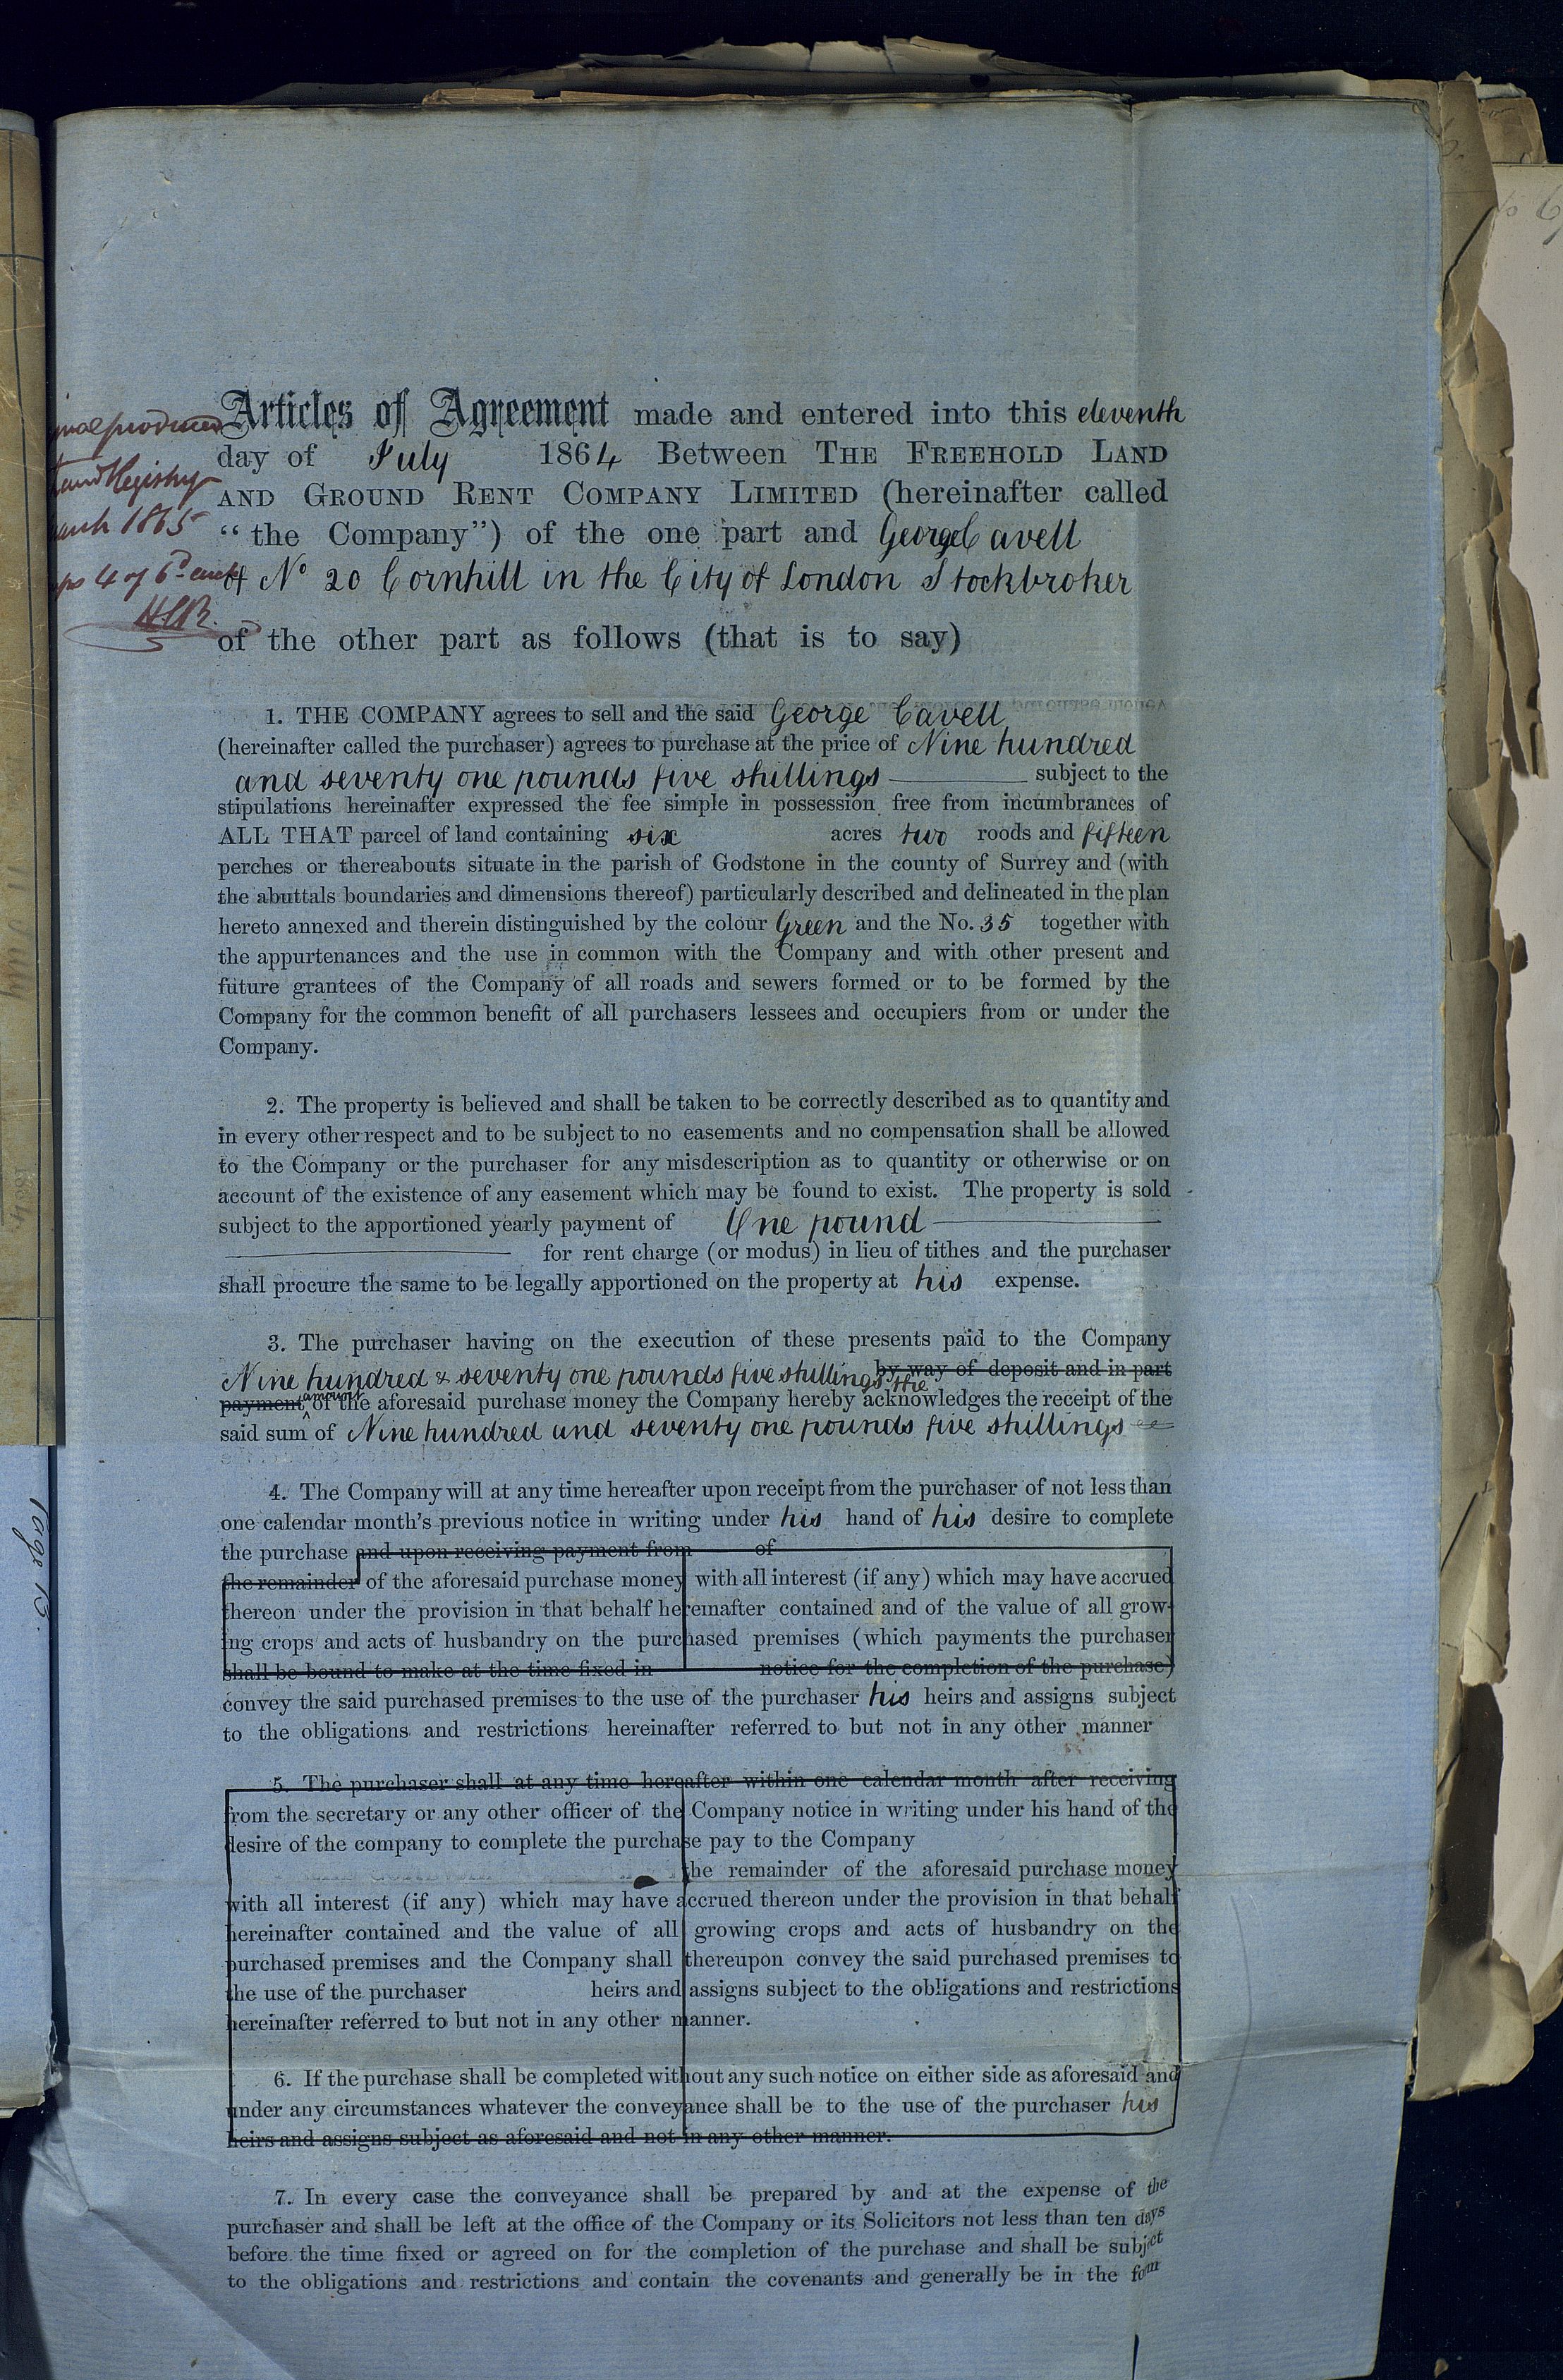 Articles of Agreement made and entered into this eleventh
day of July 1864 Between THE FREEHOLD LAND
AND GROUND RENT COMPANY LIMITED (hereinafter called
"the Company") of the one part and George Cavell
of No 20 Cornhill in the City of London Stockbroker
of the other part as follows (that is to say)
produced
Land Registry
March 1865
4 of 6d each
HCB.
1. THE COMPANY agrees to sell and the said George Cavell
(hereinafter called the purchaser) agrees to purchase at the price of Nine hundred
and seventy one pounds five shillings subject to the
stipulations hereinafter expressed the fee simple in possession free from incumbrances of
ALL THAT parcel of land containing six acres two roods and fifteen
perches or thereabouts situate in the parish of Godstone in the county of Surrey and (with
the abuttals boundaries and dimensions thereof) particularly described and delineated in the plan
hereto annexed and therein distinguished by the colour Green and the No. 35 together with
the appurtenances and the use in common with the Company and with other present and
future grantees of the Company of all roads and sewers formed or to be formed by the
Company for the common benefit of all purchasers lessees and occupiers from or under the
Company.
2. The property is believed and shall be taken to be correctly described as to quantity and
in every other respect and to be subject to no easements and no compensation shall be allowed
to the Company or the purchaser for any misdescription as to quantity or otherwise or on
account of the existence of any easement which may be found to exist. The property is sold
subject to the apportioned yearly payment of One pound
for rent charge (or modus) in lieu of tithes and the purchaser
shall procure the same to be legally apportioned on the property at his expense.
3. The purchaser having on the execution of these presents paid to the Company
Nine hundred & seventy one pounds five shillings by way of deposit and in part
the
payment amount of the aforesaid purchase money the Company hereby acknowledges the receipt of the
said sum of Nine hundred and seventy one pounds five shillings
4. The Company will at any time hereafter upon receipt from the purchaser of not less than
one calendar month's previous notice in writing under his hand of his desire to complete
the purchase and upon receiving payment from of
the remainder of the aforesaid purchase money with all interest (if any) which may have accrued
thereon under the provision in that behalf hereinafter contained and of the value of all grow-
ing crops and acts of husbandry on the purchased premises (which payments the purchaser
shall be bound to make at the time fixed in notice for the completion of the purchase)
convey the said purchased premises to the use of the purchaser his heirs and assigns subject
to the obligations and restrictions hereinafter referred to but not in any other manner
5. The purchaser shall at any time hereafter within one calendar month after receiving
from the secretary or any other officer of the Company notice in writing under his hand of the
desire of the company to complete the purchase pay to the Company
the remainder of the aforesaid purchase money
with all interest (if any) which may have accrued thereon under the provision in that behalf
hereinafter contained and the value of all growing crops and acts of husbandry on the
purchased premises and the Company shall thereupon convey the said purchased premises to
the use of the purchaser heirs and assigns subject to the obligations and restrictions
hereinafter referred to but not in any other manner.
6. If the purchase shall be completed without any such notice on either side as aforesaid and
under any circumstances whatever the conveyance shall be to the use of the purchaser his
heirs and assigns subject as aforesaid and not in any other manner.
7. In every case the conveyance shall be prepared by and at the expense of the
purchaser and shall be left at the office of the Company or its Solicitors not less than ten days
before the time fixed or agreed on for the completion of the purchase and shall be subject
to the obligations and restrictions and contain the covenants and generally be in the form